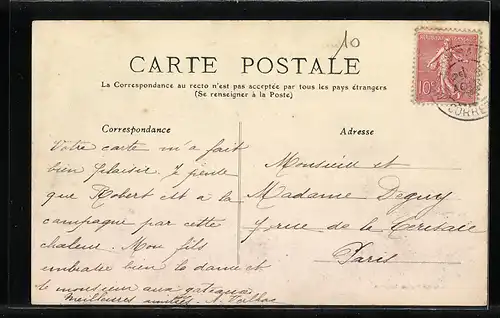 10
CARTE POSTALE
La Correspondance au recto n'est pas acceptée par tous les pays étrangers
(Se renseigner à la Poste)
Correspondance
Votre carte m'a fait
bien plaisir. Je pense
que Robert est à la
campagne par cette
chaleur. Mon fils
embrasse bien la dame et
le monsieur aux gateaux
Meilleures amitiés
Adresse
Monsieur et
Madame Deguy
7 rue de la Cerisaie
Paris
10
CORRÈ